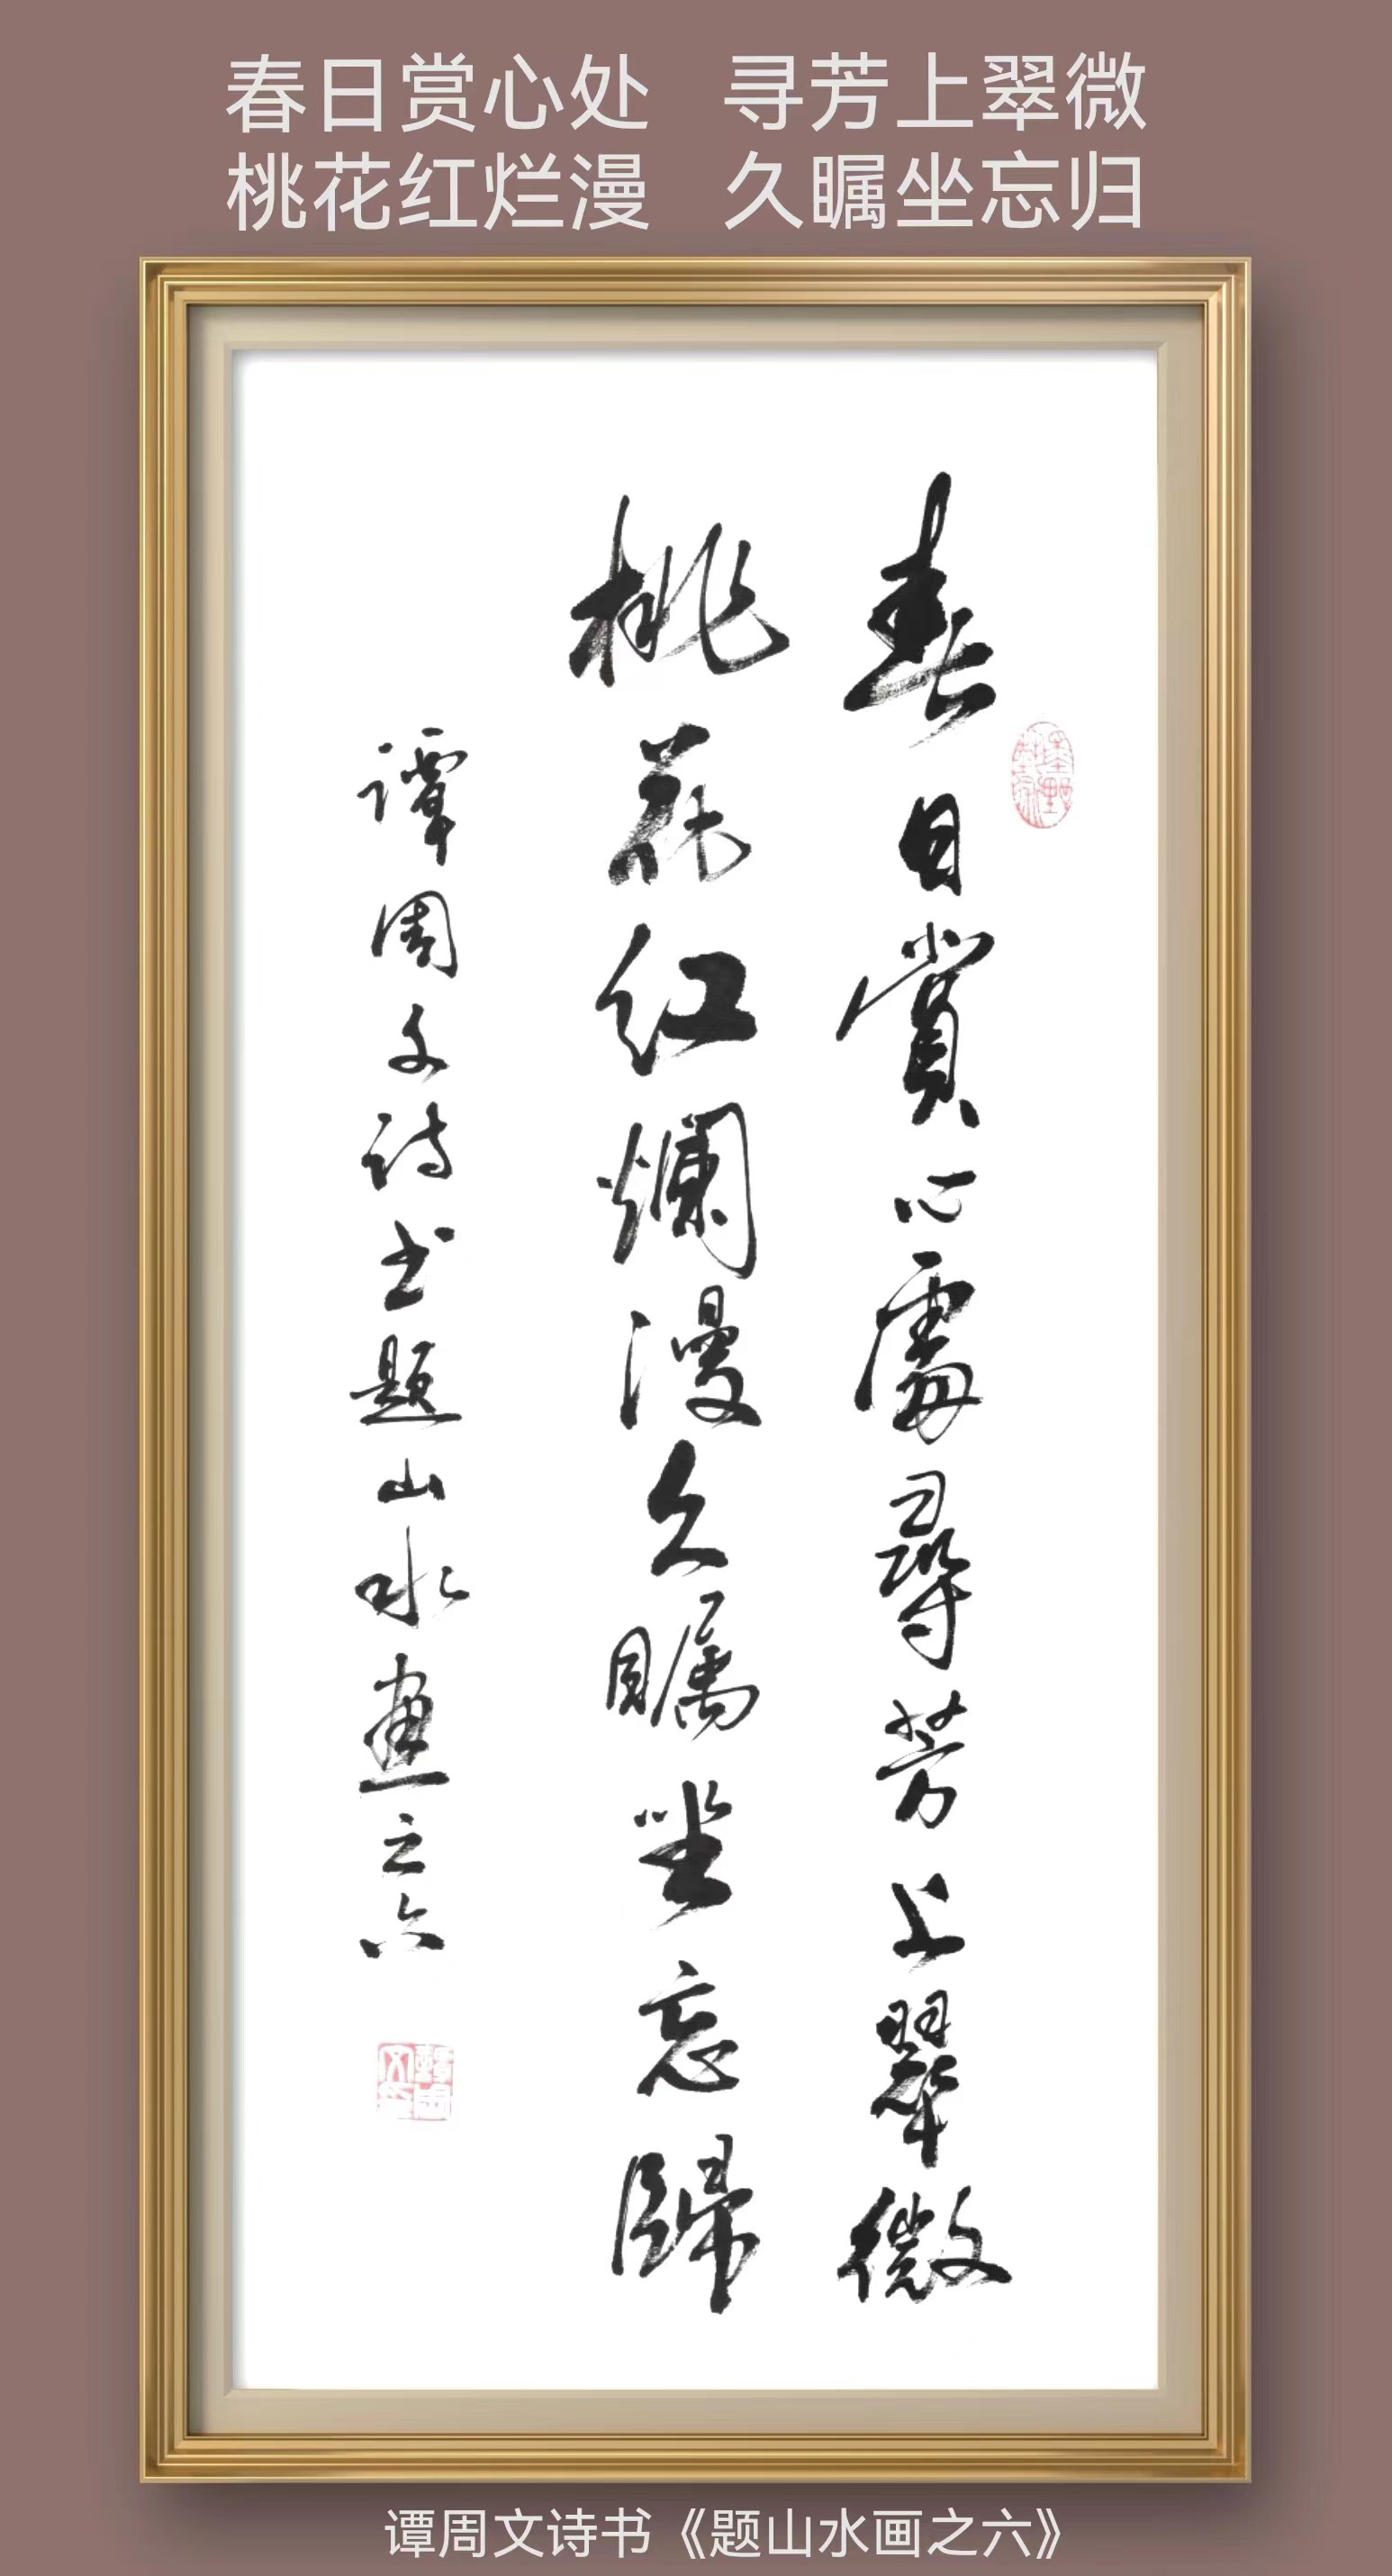 春日赏心处 寻芳上翠微
桃花红烂漫 久瞩坐忘归
春日賞心處尋芳上翠微
桃花红爛漫久瞩坐忘歸
谭周文诗书题山水畫之六
谭周文诗书《题山水画之六》